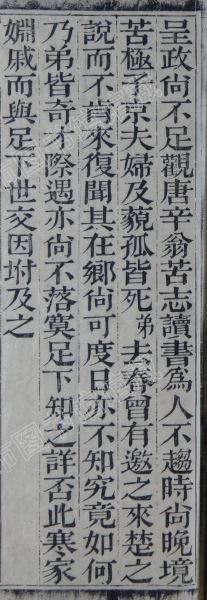 呈政尚不足觀唐辛翁苦志讀書為人不趨時尚晚境
苦極子京夫婦及藐孤皆死弟去春曾有邀之來楚之
說而不肯來復聞其在鄉尚可度日亦不知究竟如何
乃弟皆奇才際遇亦尚不落寞足下知之詳否此寒家
婣戚而與足下世交因坿及之